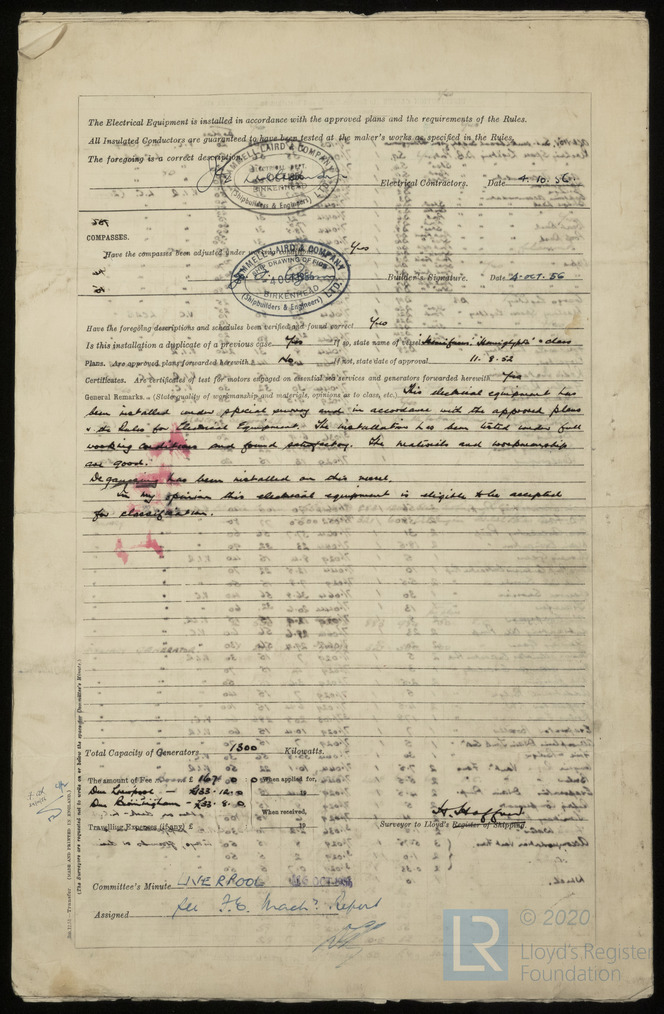 The Electrical Equipment is installed in accordance with the approved plans and the requirements of the Rules.
All Insulated Conductors are guaranteed to have been tested at the maker's works as specified in the Rules.
The foregoing is a correct description.
CAMMELL LAIRD & COMPANY LTD.
4 OCT 1956
BIRKENHEAD
(Shipbuilders & Engineers)
Electrical Contractors. Date 4.10.56.
COMPASSES.
Have the compasses been adjusted under Yes
CAMMELL LAIRD & COMPANY LTD.
4 OCT 1956
BIRKENHEAD
(Shipbuilders & Engineers)
Builder's Signature. Date 4-OCT.56
Have the foregoing descriptions and schedules been verified and found correct Yes
Is this installation a duplicate of a previous case Yes If so, state name of vessel "Hemiglypta" class
Plans. Are approved plans forwarded herewith No If not, state date of approval 11.8.52
Certificates. Are certificates of test for motors engaged on essential sea services and generators forwarded herewith Yes
General Remarks. (State quality of workmanship and materials, opinions as to class, etc.) This electrical equipment has
been installed under special survey and in accordance with the approved plans
& the Rules for Electrical Equipment. The installation has been tested under full
working conditions and found satisfactory. The materials and workmanship
are good.
Degaussing has been installed on this vessel.
In my opinion this electrical equipment is eligible to be accepted
for classification.
Total Capacity of Generators 1300 Kilowatts.
The amount of Fee £ 167 0 0 When applied for,
19
Due Liverpool — £33.12.0
Due Birmingham — £33.8.0
When received,
Travelling Expenses (if any) £ 19
Surveyor to Lloyd's Register of Shipping.
Committee's Minute LIVERPOOL OCT 1956
Assigned See F.E. Machy Report
Transfer (MADE AND PRINTED IN ENGLAND.)
(The Surveyors are requested not to write on or below the space for Committee's Minute.)
LR
© 2020
Lloyd's Register
Foundation